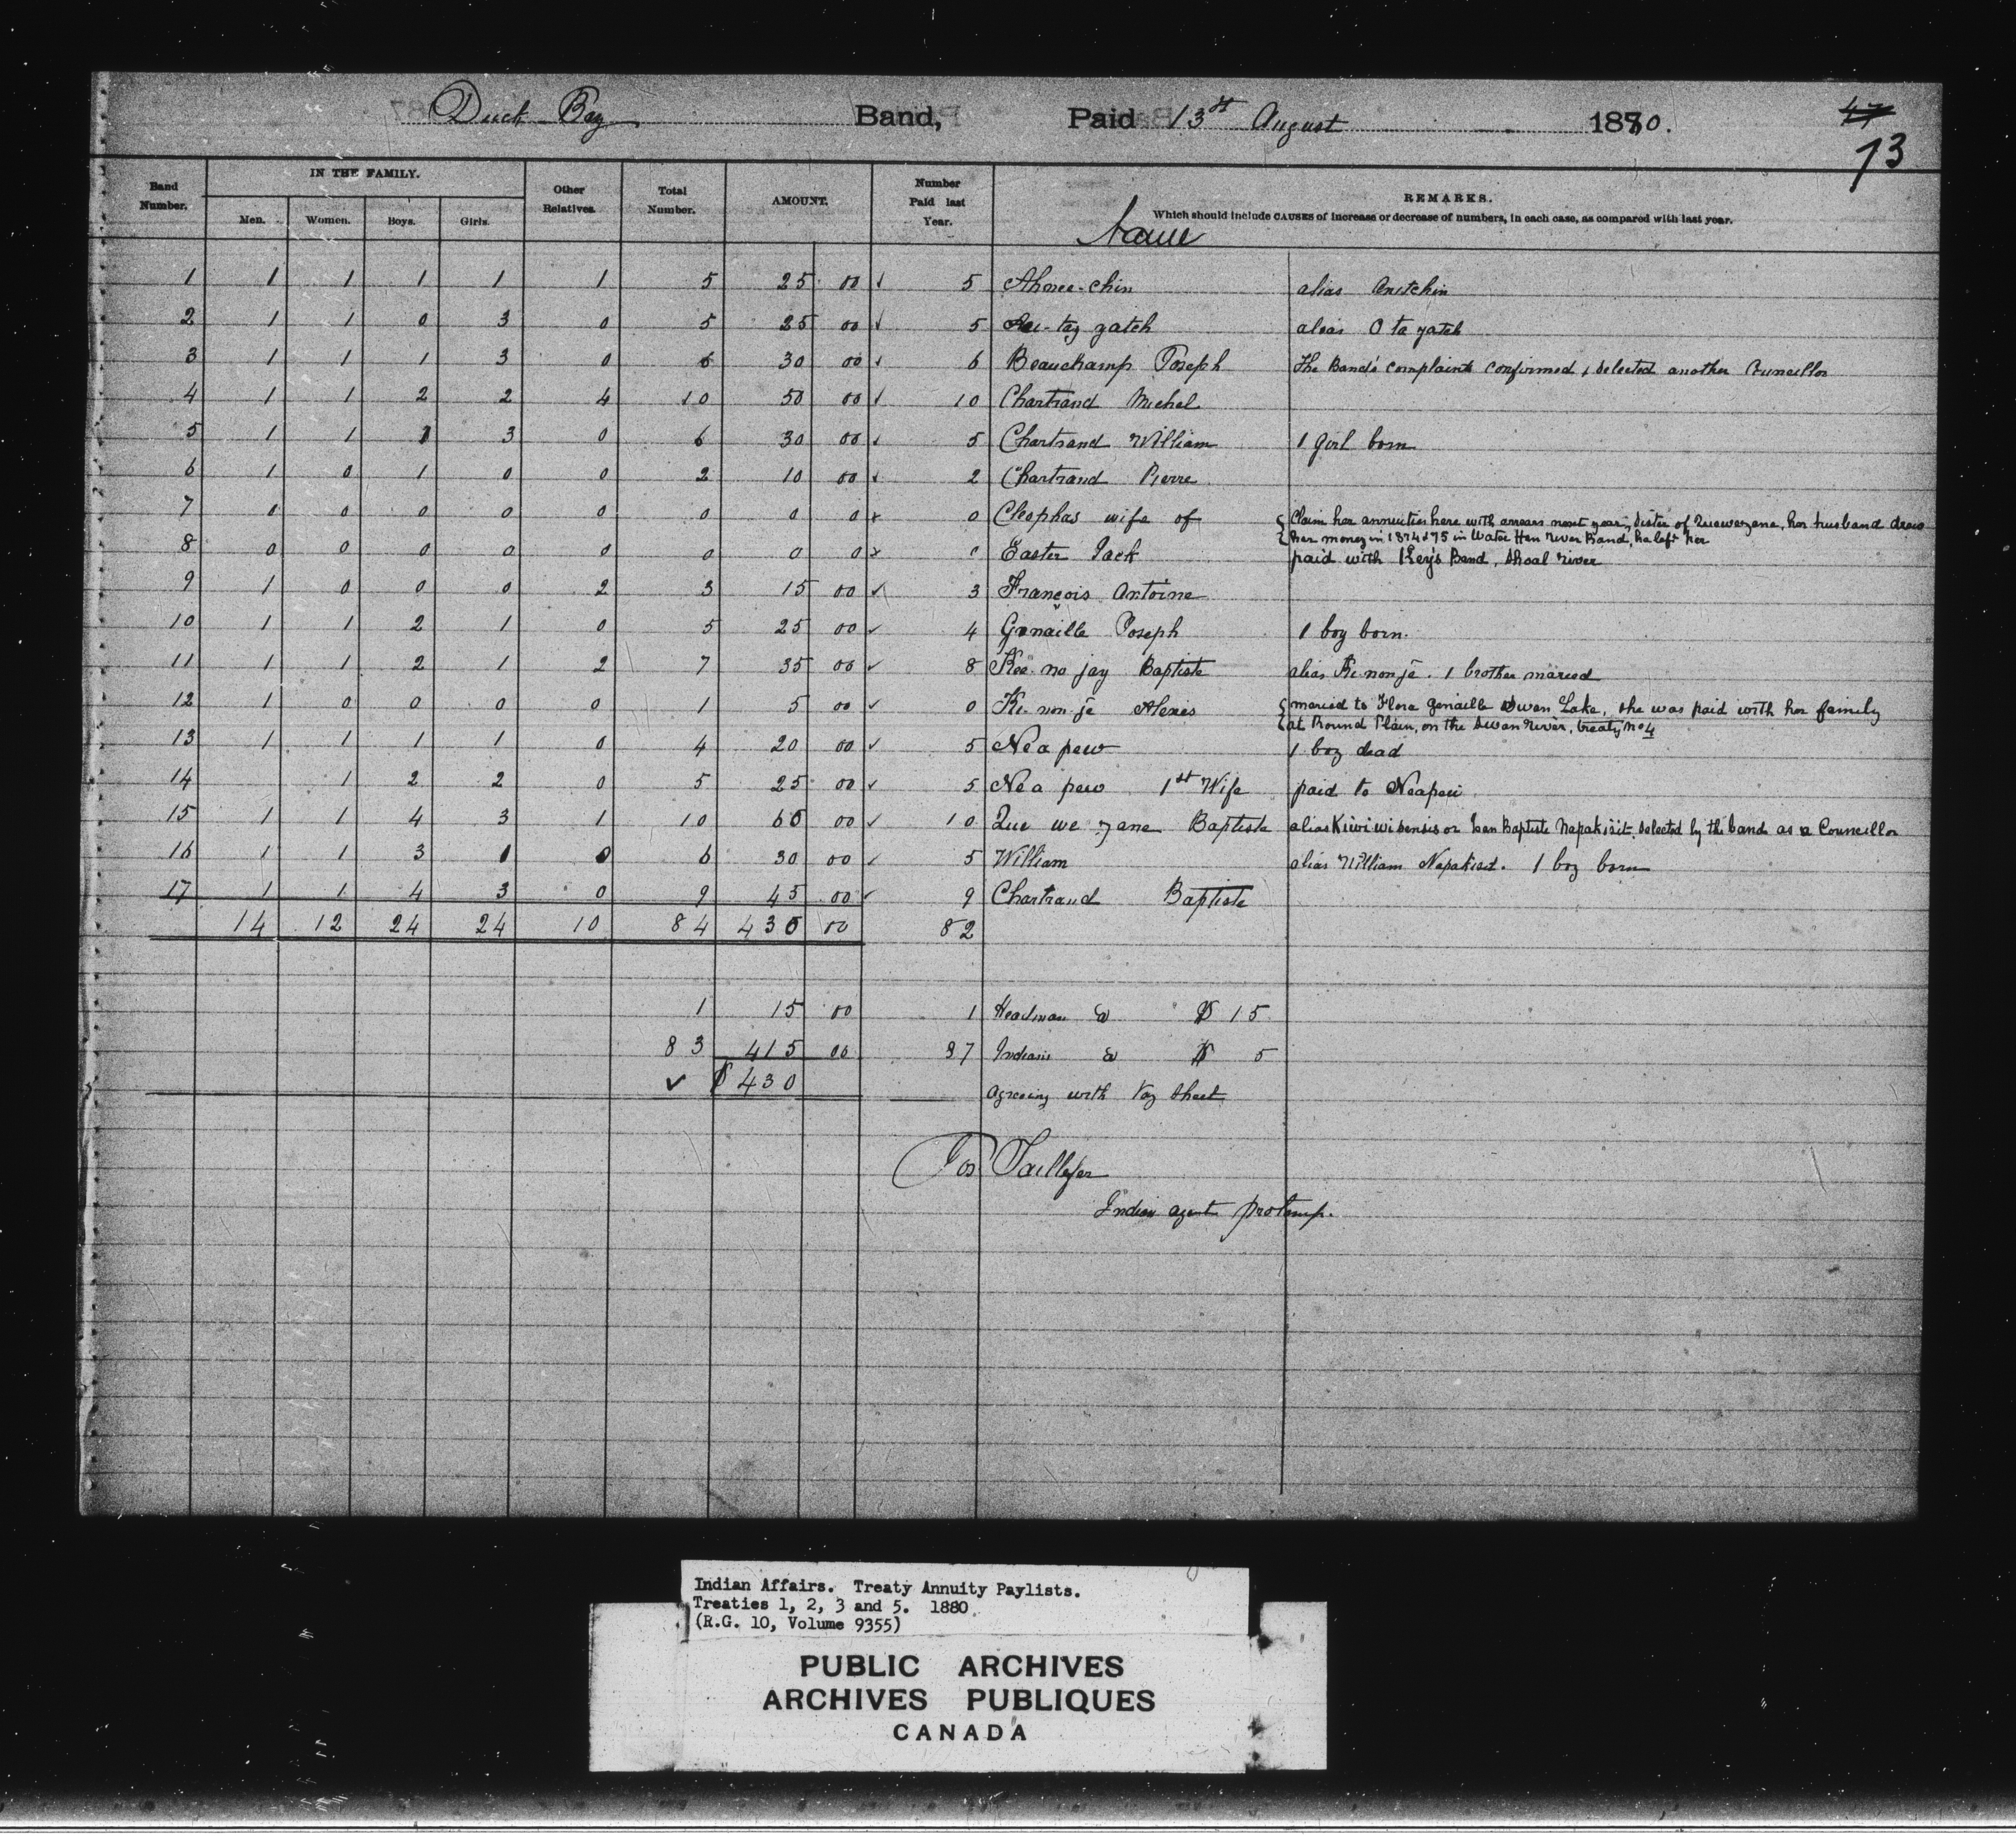 Duck Bay Band, Paid 13st August 1880.
47
73
Band Number. IN THE FAMILY. Men. Women. Boys. Girls. Other Relatives. Total Number. AMOUNT. Number Paid last Year. REMARKS.
Which should include CAUSES of increase or decrease of numbers, in each case, as compared with last year.
Name
1 1 1 1 1 1 5 25 00 ✓ 5 Ahnee-chin alias Anetchin
2 1 1 0 3 0 5 25 00 ✓ 5 tay gatch alias O ta gatch
3 1 1 1 3 0 6 30 00 ✓ 6 Beauchamp Joseph The Band's complaint confirmed & selected another Councillor
4 1 1 2 2 4 10 50 00 ✓ 10 Chartrand Michel
5 1 1 1 3 0 6 30 00 ✓ 5 Chartrand William 1 girl born
6 1 0 1 0 0 2 10 00 ✓ 2 Chartrand Pierre
7 0 0 0 0 0 0 0 0 x 0 Cleophas wife of { Claim her annuities here with arrears next year, sister of Quewezane, her husband drew
{ her money in 1874 & 75 in Water Hen River Band, he left her
8 0 0 0 0 0 0 0 0 x 0 Easter Jack paid with Key's Band, Shoal river
9 1 0 0 0 2 3 15 00 ✓ 3 François Antoine
10 1 1 2 1 0 5 25 00 ✓ 4 Genaille Joseph 1 boy born.
11 1 1 2 1 2 7 35 00 ✓ 8 Kee-no jay Baptiste alias Ke non je. 1 brother maried
12 1 0 0 0 0 1 5 00 ✓ 0 Ke-non-je Alexes { maried to Flora Genaille Swan Lake, she was paid with her family
{ at Round Plain, on the Swan River, treaty No 4
13 1 1 1 1 0 4 20 00 ✓ 5 Nea pew 1 boy dead
14 1 2 2 0 5 25 00 ✓ 5 Nea pew 1st Wife paid to Neapew
15 1 1 4 3 1 10 60 00 ✓ 10 Que we zane Baptiste alias Kiwiwisensis or Jean Baptiste Napakisit. selected by the band as a Councillor
16 1 1 3 1 0 6 30 00 ✓ 5 William alias William Napakisit. 1 boy born
17 1 1 4 3 0 9 45 00 ✓ 9 Chartrand Baptiste
14 12 24 24 10 84 430 00 82
1 15 00 1 Headman @ $15
83 415 00 Indians @ $ 5
✓ $430 agreeing with Pay Sheet
Jos Taillefer
Indian agent protemp.
Indian Affairs. Treaty Annuity Paylists.
Treaties 1, 2, 3 and 5. 1880.
(R.G. 10, Volume 9355)
PUBLIC ARCHIVES
ARCHIVES PUBLIQUES
CANADA